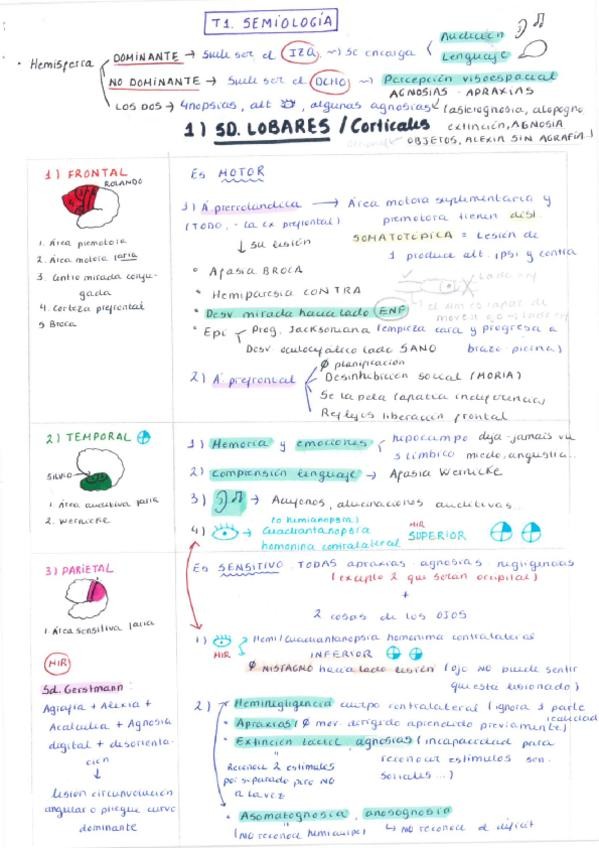 T1. SEMIOLOGÍA
• Hemisferio
DOMINANTE → Suele ser el IZQ → Se encarga
Audición
Lenguaje
NO DOMINANTE → Suele ser el DCHO → Percepción visoespacial
AGNOSIAS - APRAXIAS
LOS DOS → Anopsias, alt , algunas agnosias (asterognosia, alopogno
extinción, AGNOSIA
OBJETOS, ALEXIA SIN AGRAFIA..)
1) SD. LOBARES / Corticales
1) FRONTAL
ROLANDO
1. Área premotora
2. Área motora 1aria
3. Centro mirada conju-
gada
4. Corteza prefrontal
5 Broca
Es MOTOR
1) Á prerrolándica → Área motora suplementaria y
(TODO, - la cx prefrontal) premotora tienen dist.
↓ su lesión SOMATOTÓPICA = Lesión de
1 produce alt. ipsi y contra
• Afasia BROCA
• Hemiparesia CONTRA
• Desv mirada hacia lado ENF
• Epi Prog. Jacksoniana (empieza cara y progresa a
Desv oculocefálico lado SANO brazo-pierna)
2) Á prefrontal
Ø planificación
Desinhibición social (MORIA)
Se la pela (apatía indiferencia)
Reflejos liberación frontal
2) TEMPORAL
SILVIO
1 Área auditiva 1aria
2. Wernicke
1) Memoria y emociones
hipocampo deja-jamais vu
s límbico miedo, angustia...
2) Comprensión lenguaje → Afasia Wernicke
3) → Acúfenos, alucinaciones auditivas...
4) → (o hemianopsia)
Cuadrantanopsia
homónima contralateral
MIR
SUPERIOR
3) PARIETAL
1 Área sensitiva 1aria
MIR
Sd. Gerstmann:
Agrafia + Alexia +
Acalculia + Agnosia
digital + desorienta-
ción
↓
Lesión circunvolución
angular o pliegue curvo
dominante
Es SENSITIVO. TODAS apraxias - agnosias negligencias
(excepto 2 que serán occipital)
+
2 cosas de los OJOS
1) → Hemi/Cuadrantanopsia homónima contralateral
MIR
INFERIOR
Ø NISTAGMO hacia lado lesión (ojo NO puede sentir
que está lesionado)
2) • Heminegligencia cuerpo contralateral (ignora 1 parte
realidad
• Apraxias (Ø mov. dirigido aprendido previamente)
• Extinción táctil, agnosias (incapacidad para
reconocer estímulos sen-
soriales...)
Reconoce 2 estímulos
por separado pero NO
a la vez
• Asomatognosia, anosognosia
(NO reconoce hemicuerpo) ↳ NO reconoce el déficit